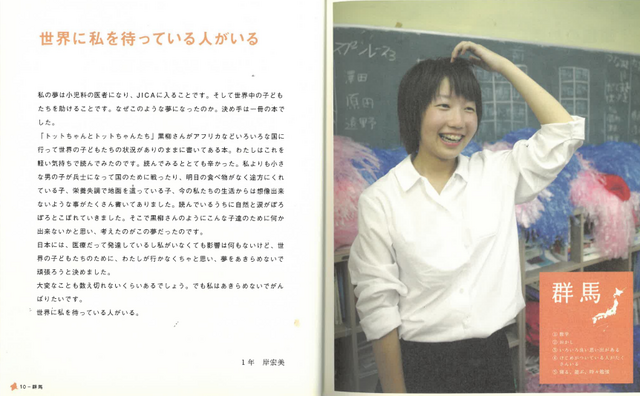 世界に私を待っている人がいる
私の夢は小児科の医者になり、JICAに入ることです。そして世界中の子ども
たちを助けることです。なぜこのような夢になったのか。決め手は一冊の本で
した。
「トットちゃんとトットちゃんたち」黒柳さんがアフリカなどいろいろな国に
行って世界の子どもたちの状況がありのままに書いてある本。わたしはこれを
軽い気持ちで読んでみたのです。読んでみるととても辛かった。私よりも小さ
な男の子が兵士になって国のために戦ったり、明日の食べ物がなく途方にくれ
ている子、栄養失調で地面を這っている子、今の私たちの生活からは想像出来
ないような事がたくさん書いてありました。読んでいるうちに自然と涙がぼろ
ぼろとこぼれていきました。そこで黒柳さんのようにこんな子達のために何か
出来ないかと思い、考えたのがこの夢だったのです。
日本には、医療だって発達しているし私がいなくても影響は何もないけど、世
界の子どもたちのために、わたしが行かなくちゃと思い、夢をあきらめないで
頑張ろうと決めました。
大変なことも数え切れないくらいあるでしょう。でも私はあきらめないでがん
ばりたいです。
世界に私を待っている人がいる。
1年 岸宏美
10-群馬
原田
群馬